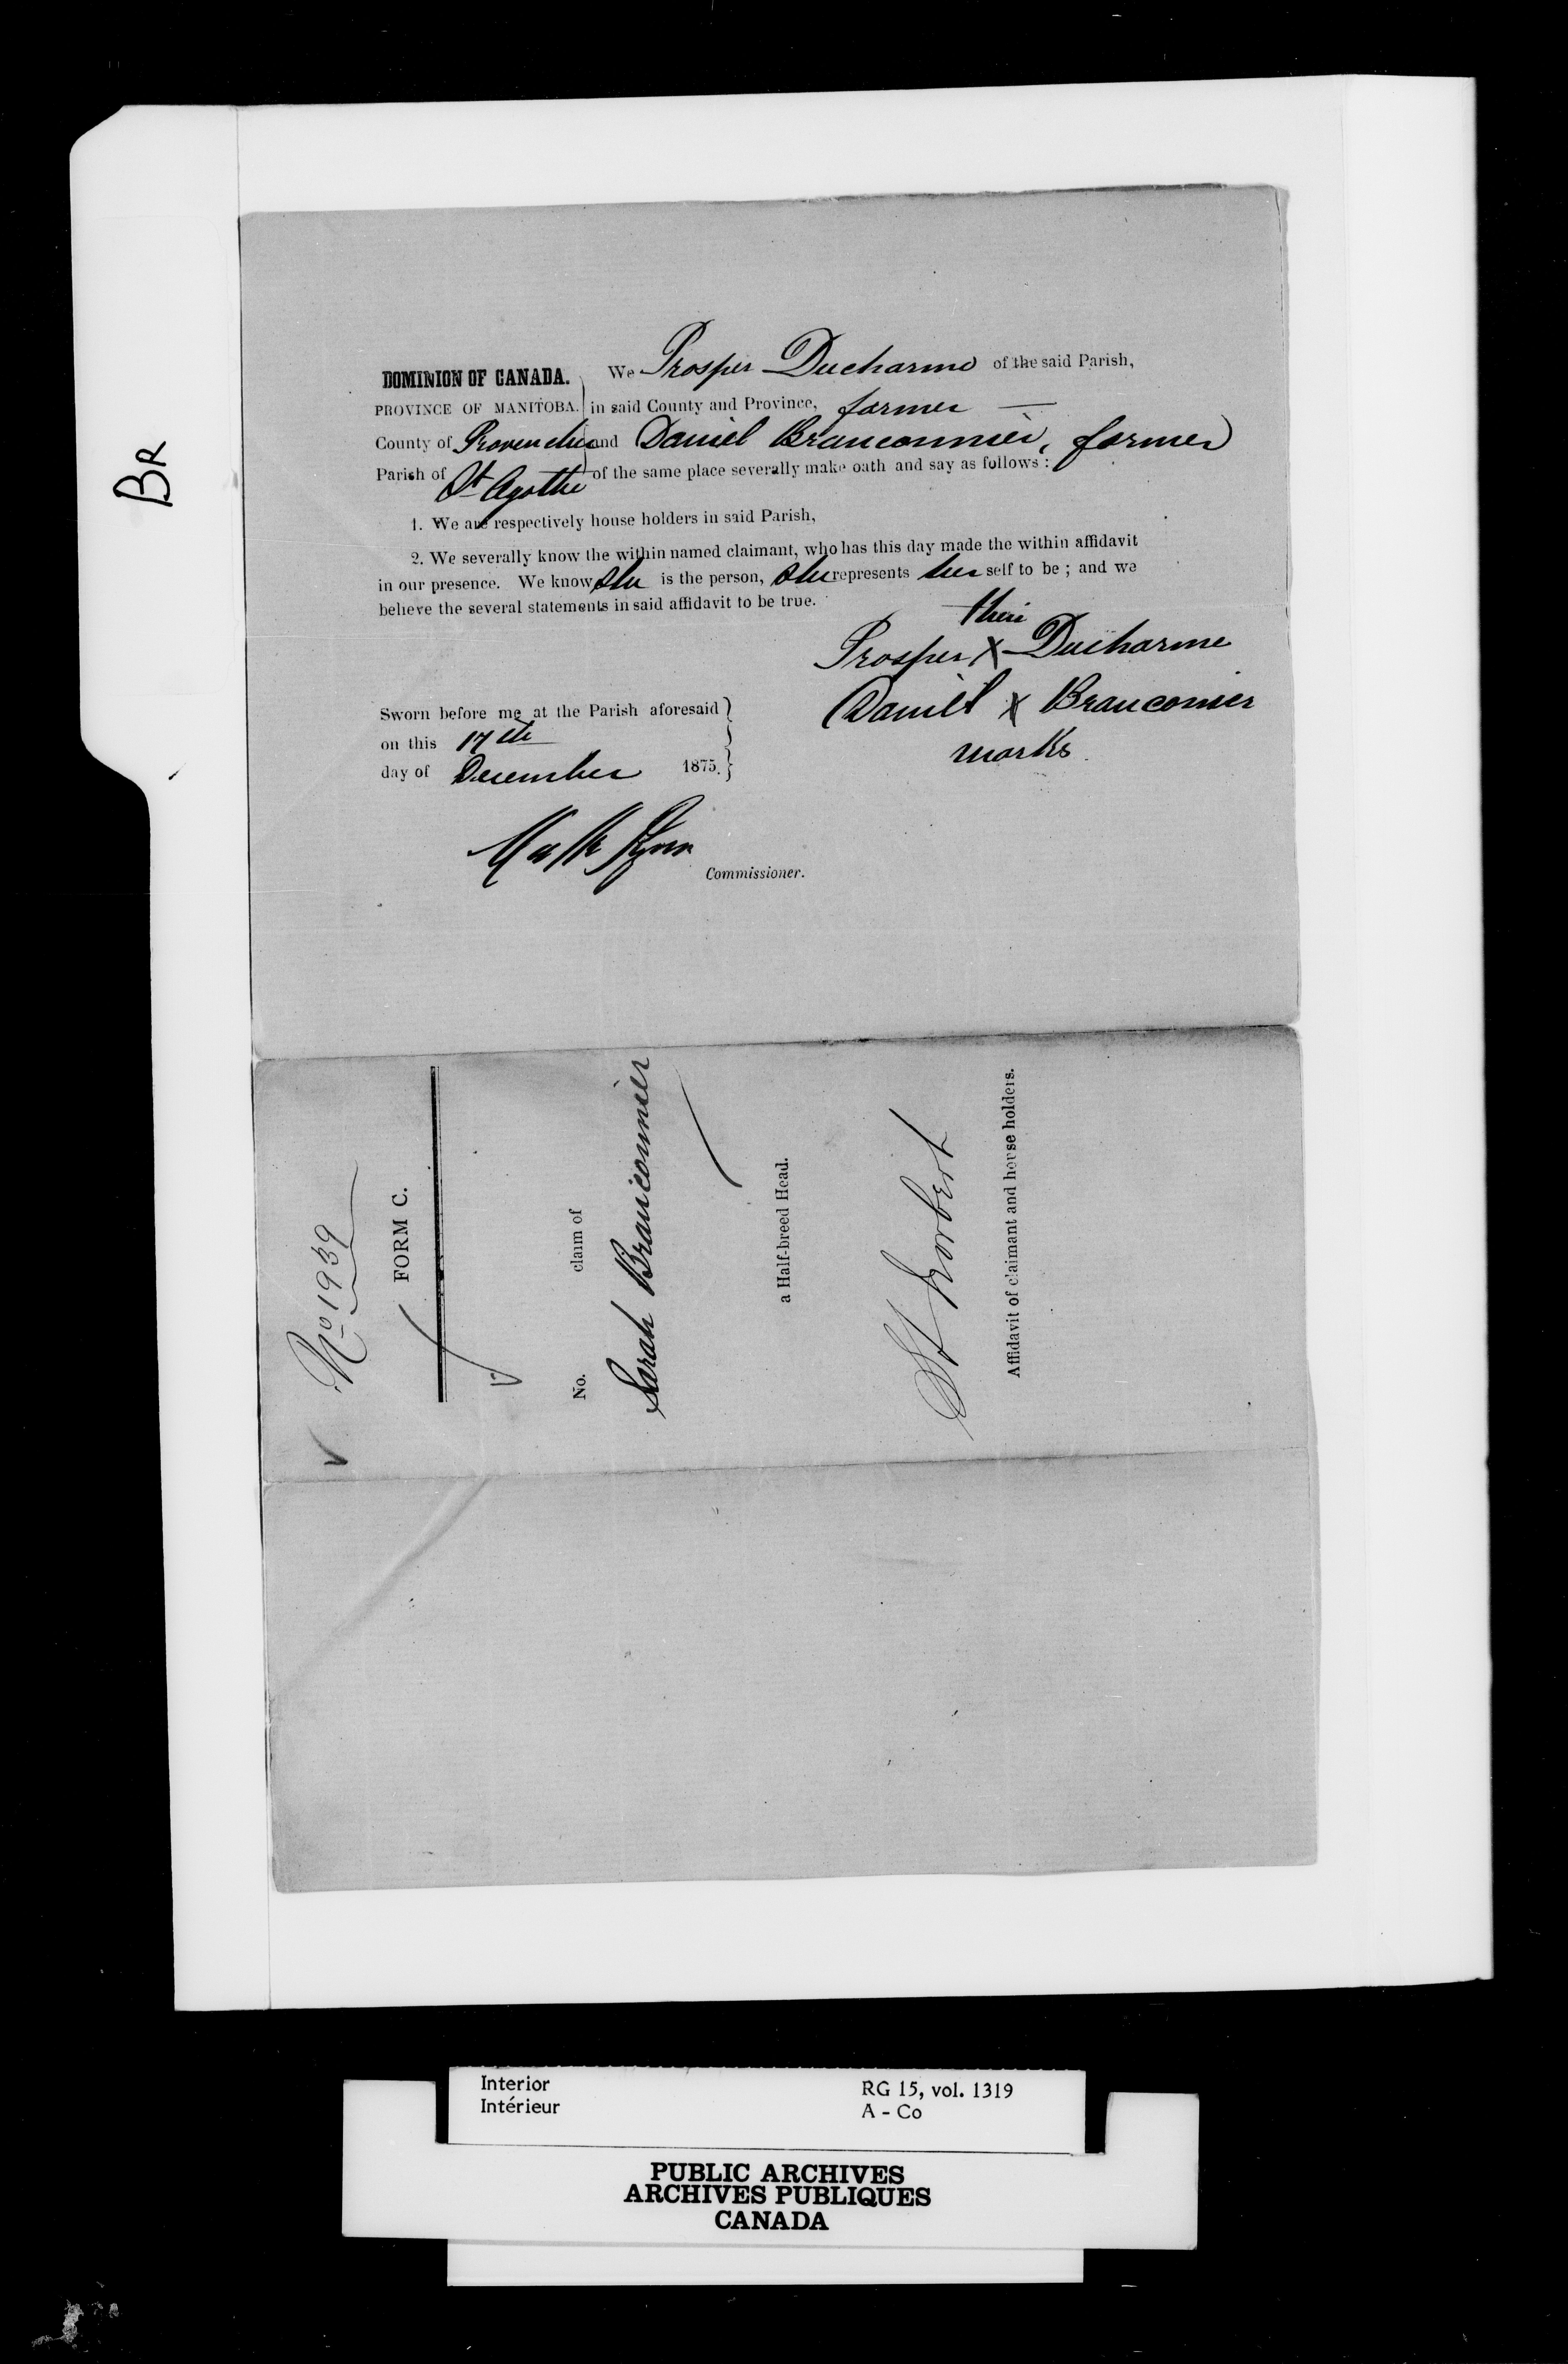 BR
DOMINION OF CANADA. We Prosper Ducharme of the said Parish,
PROVINCE OF MANITOBA. in said County and Province, farmer —
County of Provencher and Daniel Brauconnier, farmer
Parish of St Agathe of the same place severally make oath and say as follows :
1. We are respectively house holders in said Parish,
2. We severally know the within named claimant, who has this day made the within affidavit
in our presence. We know she is the person, she represents her self to be ; and we
believe the several statements in said affidavit to be true.
their
Prosper X Ducharme
Daniel X Brauconier
marks.
Sworn before me at the Parish aforesaid
on this 17th
day of December 1875.
Commissioner.
No 1939
FORM C.
No. claim of
Sarah Brauconnier
a Half-breed Head.
St Norbert
Affidavit of claimant and house holders.
Interior RG 15, vol. 1319
Intérieur A - Co
PUBLIC ARCHIVES
ARCHIVES PUBLIQUES
CANADA